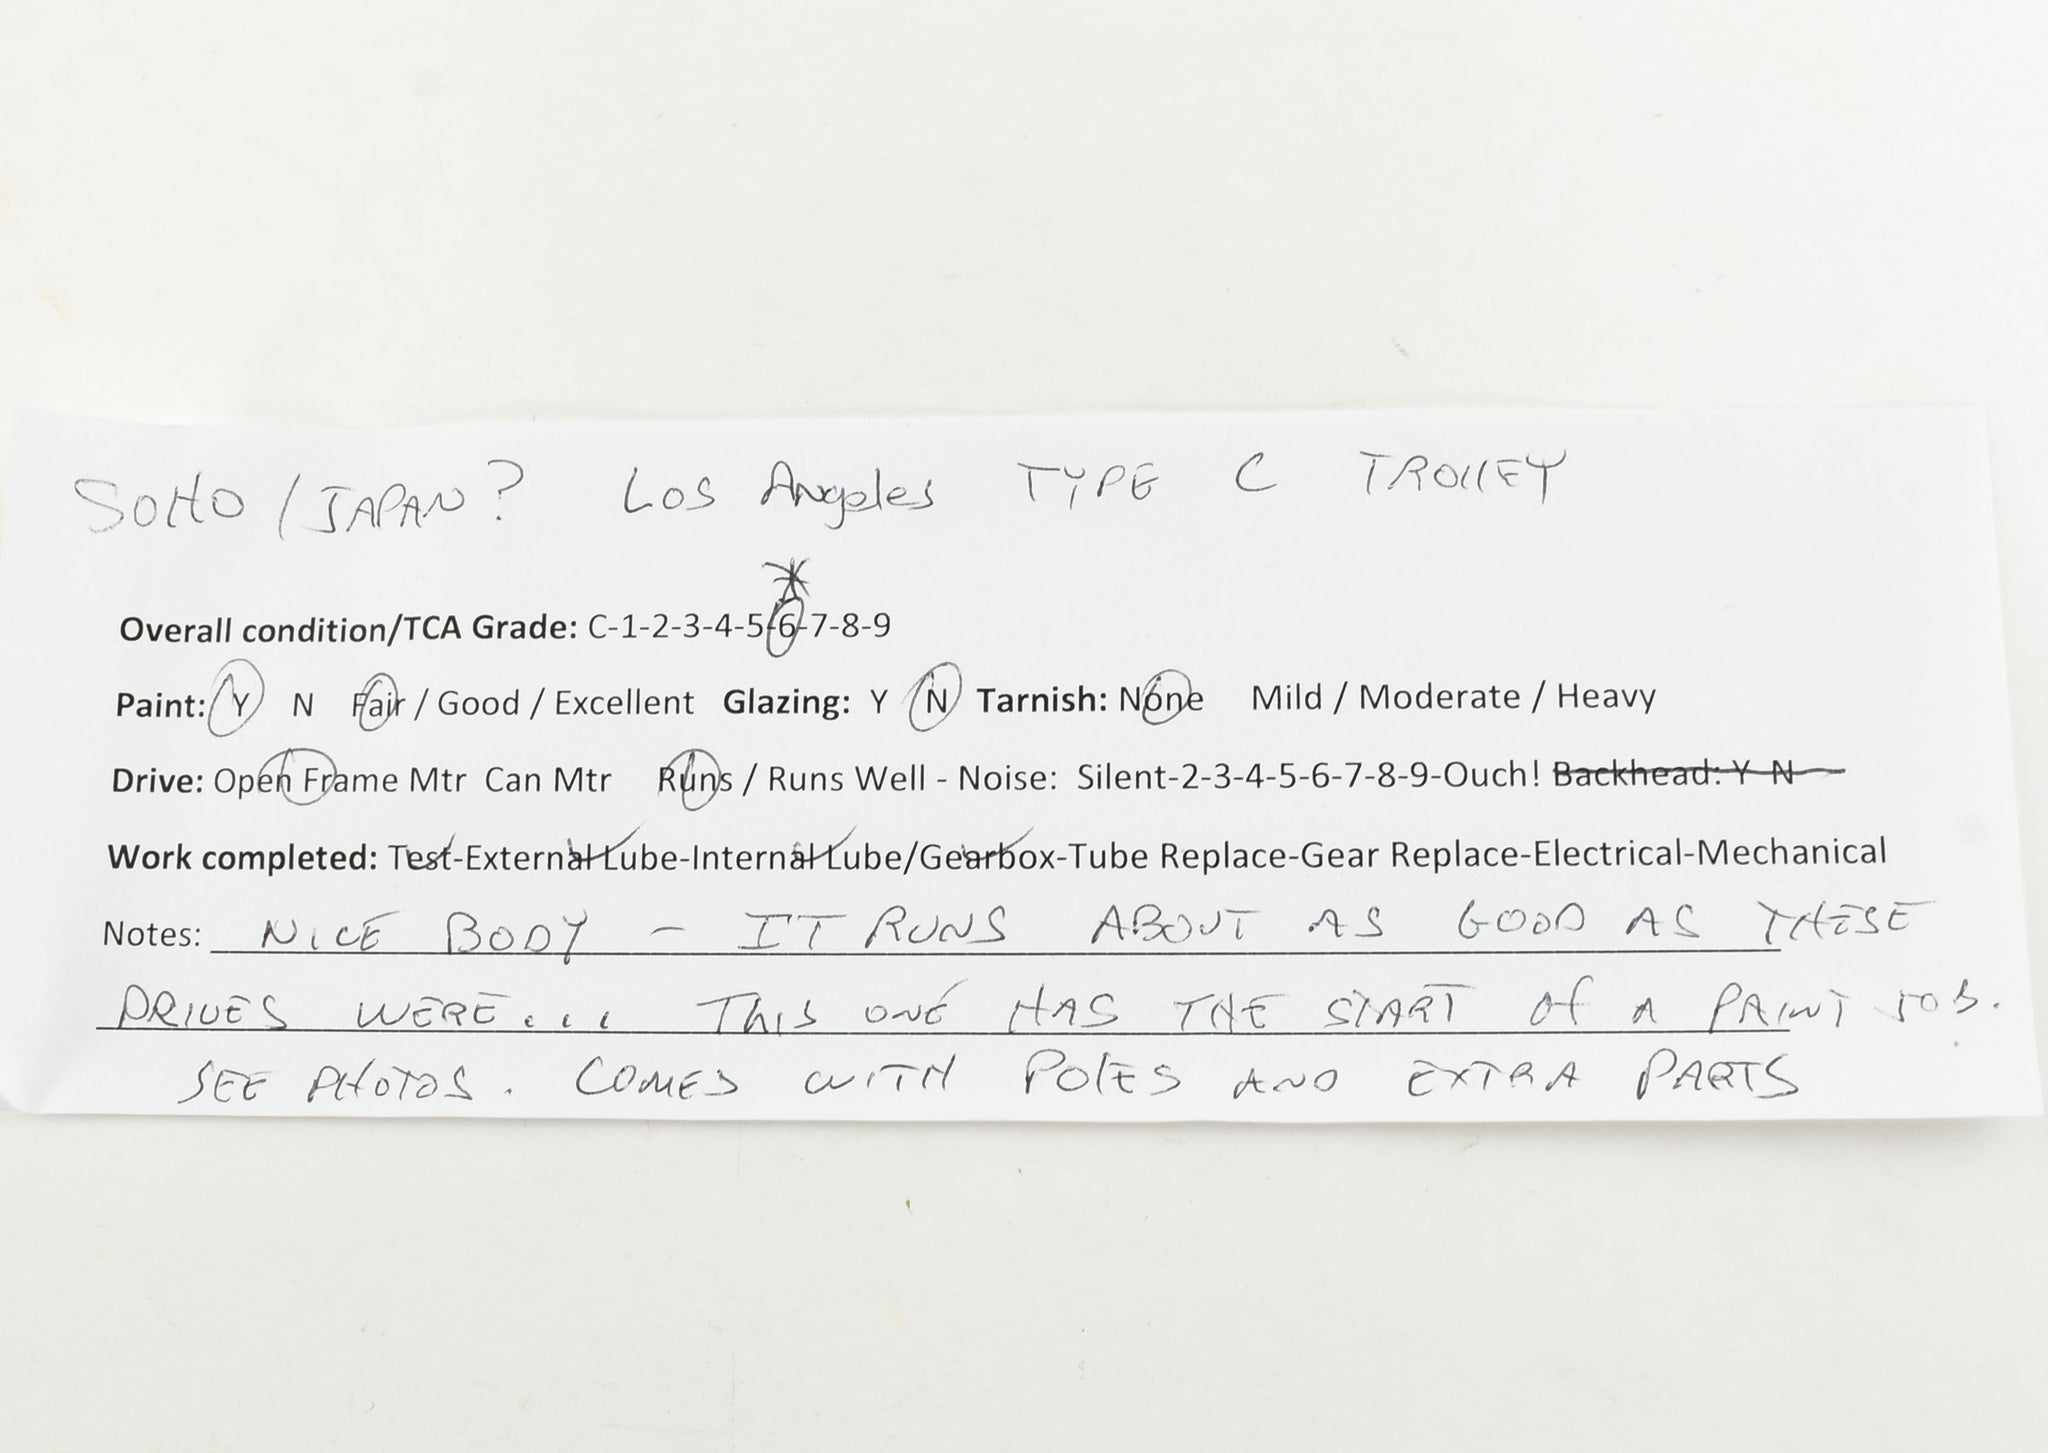 SOHO / JAPAN? Los Angeles TYPE C TROLLEY
Overall condition/TCA Grade: C-1-2-3-4-5-6-7-8-9
Paint: Y N Fair / Good / Excellent Glazing: Y N Tarnish: None Mild / Moderate / Heavy
Drive: Open Frame Mtr Can Mtr Runs / Runs Well - Noise: Silent-2-3-4-5-6-7-8-9-Ouch! Backhead: Y N
Work completed: Test-External Lube-Internal Lube/Gearbox-Tube Replace-Gear Replace-Electrical-Mechanical
Notes: NICE BODY - IT RUNS ABOUT AS GOOD AS THESE
DRIVES WERE... THIS ONE HAS THE START of A PAINT JOB.
SEE PHOTOS. COMES WITH POLES AND EXTRA PARTS